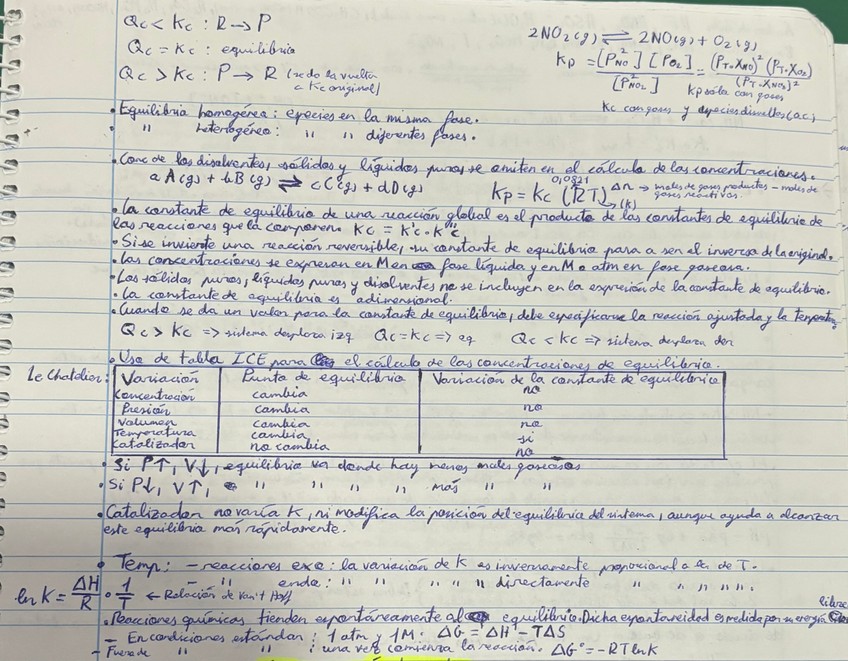 Qc < Kc : R → P
Qc = Kc : equilibrio
Qc > Kc : P → R (se da la vuelta a Kc original)
2NO₂(g) ⇌ 2NO(g) + O₂(g)
Kp = [P²NO] [PO₂] / [P²NO₂] = (PT·XNO)² (PT·XO₂) / (PT·XNO₂)²
Kp sólo con gases
Kc con gases y especies disueltas (ac)
• Equilibrio homogéneo: especies en la misma fase.
• " heterogéneo: " " diferentes fases.
• Conc de los disolventes, sólidos y líquidos puros, se omiten en el cálculo de las concentraciones.
aA(g) + bB(g) ⇌ cC(g) + dD(g)
0,0821
Kp = Kc (RT)^Δn → moles de gases productos – moles de gases reactivos.
(K)
• La constante de equilibrio de una reacción global es el producto de las constantes de equilibrio de
las reacciones que la componen. Kc = K'c · K''c
• Si se invierte una reacción reversible, su constante de equilibrio pasa a ser el inverso de la original.
• Las concentraciones se expresan en M en fase líquida y en M o atm en fase gaseosa.
• Los sólidos puros, líquidos puros y disolventes no se incluyen en la expresión de la constante de equilibrio.
• La constante de equilibrio es adimensional.
• Cuando se da un valor para la constante de equilibrio, debe especificarse la reacción ajustada y la temperatura
Qc > Kc => sistema desplaza izq Qc = Kc => eq Qc < Kc => sistema desplaza der
• Uso de tabla ICE para el cálculo de las concentraciones de equilibrio.
Le Chatelier:
Variación Punto de equilibrio Variación de la constante de equilibrio
Concentración cambia no
Presión cambia no
Volumen cambia no
Temperatura cambia si
Catalizador no cambia no
• Si P↑, V↓, equilibrio va donde hay menos moles gaseosos
• Si P↓, V↑, " " " " más " "
• Catalizador no varía K, ni modifica la posición del equilibrio del sistema, aunque ayuda a alcanzar
este equilibrio más rápidamente.
• Temp: – reacciones exo: la variación de K es inversamente proporcional a la de T.
– " endo: " " " " " directamente " " " " ".
ln K = ΔH/R · 1/T ← Relación de Van't Hoff
• Reacciones químicas tienden espontáneamente al equilibrio. Dicha espontaneidad es medida por su energía libre
– En condiciones estándar: 1 atm y 1M. ΔG° = ΔH° – TΔS
– Fuera de " " : una vez comienza la reacción. ΔG° = –RT ln K